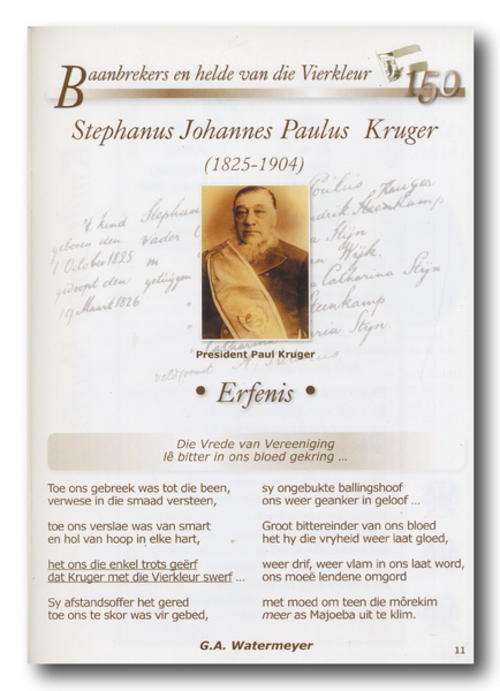 Baanbrekers en helde van die Vierkleur
150
Stephanus Johannes Paulus Kruger
(1825-1904)
't kind Stephanus Paulus Kruger
geboren den vader
1 October 1825
gedoopt den getuigen
19 Maart 1826
Catharina Stijn
President Paul Kruger
• Erfenis •
Die Vrede van Vereeniging
lê bitter in ons bloed gekring ...
Toe ons gebreek was tot die been,
verwese in die smaad versteen,
toe ons verslae was van smart
en hol van hoop in elke hart,
het ons die enkel trots geërf
dat Kruger met die Vierkleur swerf ...
Sy afstandsoffer het gered
toe ons te skor was vir gebed,
sy ongebukte ballingshoof
ons weer geanker in geloof ...
Groot bittereinder van ons bloed
het hy die vryheid weer laat gloed,
weer drif, weer vlam in ons laat word,
ons moeë lendene omgord
met moed om teen die môrekim
meer as Majoeba uit te klim.
G.A. Watermeyer
11